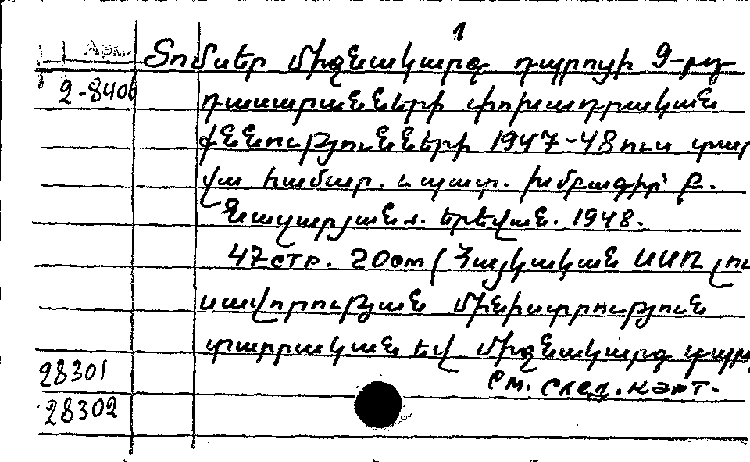 1
Арм.
Տոմսեր միջնակարգ դպրոցի 9-րդ
2-8406
դասարանների փոխադրական
քննությունների 1947-48 ուս տար
վա համար. պատ. խմբագիր՝ Ք.
Նազարյան. Երեվան. 1948.
47 стр. 20 см (Հայկական ՍՍՌ լու
սավորության մինիստրություն
տարրական եվ միջնակարգ դպրո
28301
См. след. карт-
28302